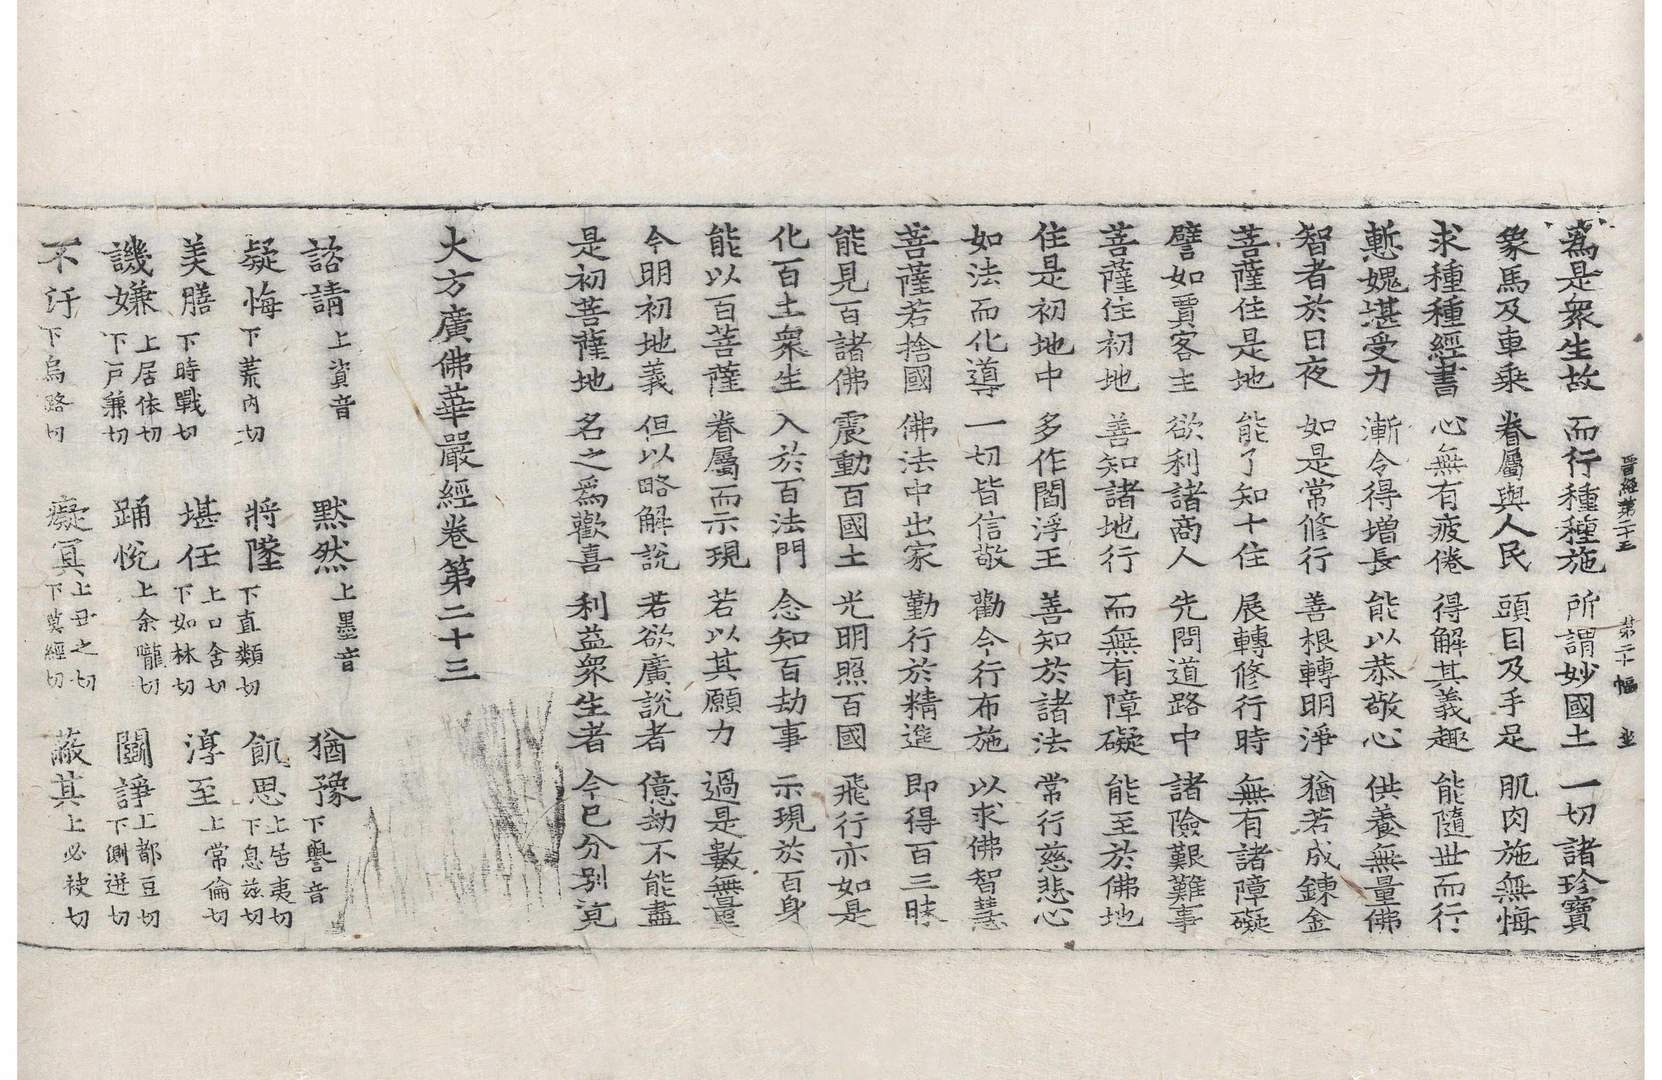 晋經第二十三　第二十幅　並
爲是衆生故　而行種種施　所謂妙國土　一切諸珍寶
象馬及車乘　眷屬與人民　頭目及手足　肌肉施無悔
求種種經書　心無有疲倦　得解其義趣　能隨世而行
慙媿堪受力　漸令得增長　能以恭敬心　供養無量佛
智者於日夜　如是常修行　善根轉明淨　猶若成鍊金
菩薩住是地　能了知十住　展轉修行時　無有諸障礙
譬如賈客主　欲利諸商人　先問道路中　諸險艱難事
菩薩住初地　善知諸地行　而無有障礙　能至於佛地
住是初地中　多作閻浮王　善知於諸法　常行慈悲心
如法而化導　一切皆信敬　勸令行布施　以求佛智慧
菩薩若捨國　佛法中出家　勤行於精進　即得百三昧
能見百諸佛　震動百國土　光明照百國　飛行亦如是
化百土衆生　入於百法門　念知百劫事　示現於百身
能以百菩薩　眷屬而示現　若以其願力　過是數無量
今明初地義　但以略解說　若欲廣說者　億劫不能盡
是初菩薩地　名之爲歡喜　利益衆生者　今已分別竟
大方廣佛華嚴經卷第二十三
諮請上資音　默然上墨音　猶豫下譽音
凝悔下荒內切　將墜下直類切　飢思上居夷切下息兹切
美膳下時戰切　堪任上口含切下如林切　淳至上常倫切
譏嫌上居依切下戶兼切　踊悅上余隴切　鬪諍上都豆切下側迸切
不汙下烏路切　癡冥上丑之切下莫經切　蔽其上必袂切